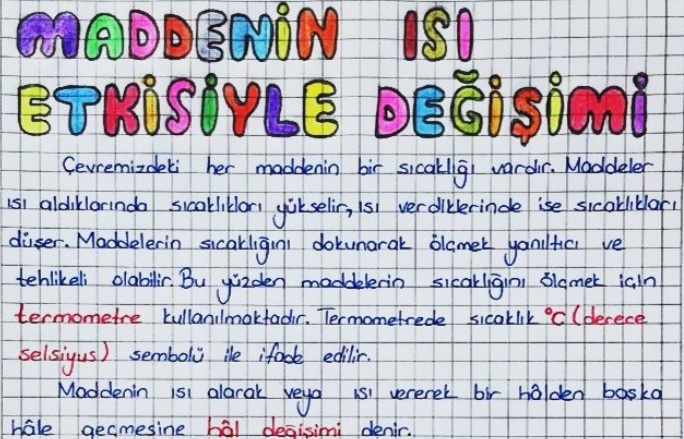 MADDENİN ISI
ETKİSİYLE DEĞİŞİMİ
Çevremizdeki her maddenin bir sıcaklığı vardır. Maddeler
ısı aldıklarında sıcaklıkları yükselir, ısı verdiklerinde ise sıcaklıkları
düşer. Maddelerin sıcaklığını dokunarak ölçmek yanıltıcı ve
tehlikeli olabilir. Bu yüzden maddelerin sıcaklığını ölçmek için
termometre kullanılmaktadır. Termometrede sıcaklık °C (derece
selsiyus) sembolü ile ifade edilir.
Maddenin ısı alarak veya ısı vererek bir hâlden başka
hâle geçmesine hâl değişimi denir.